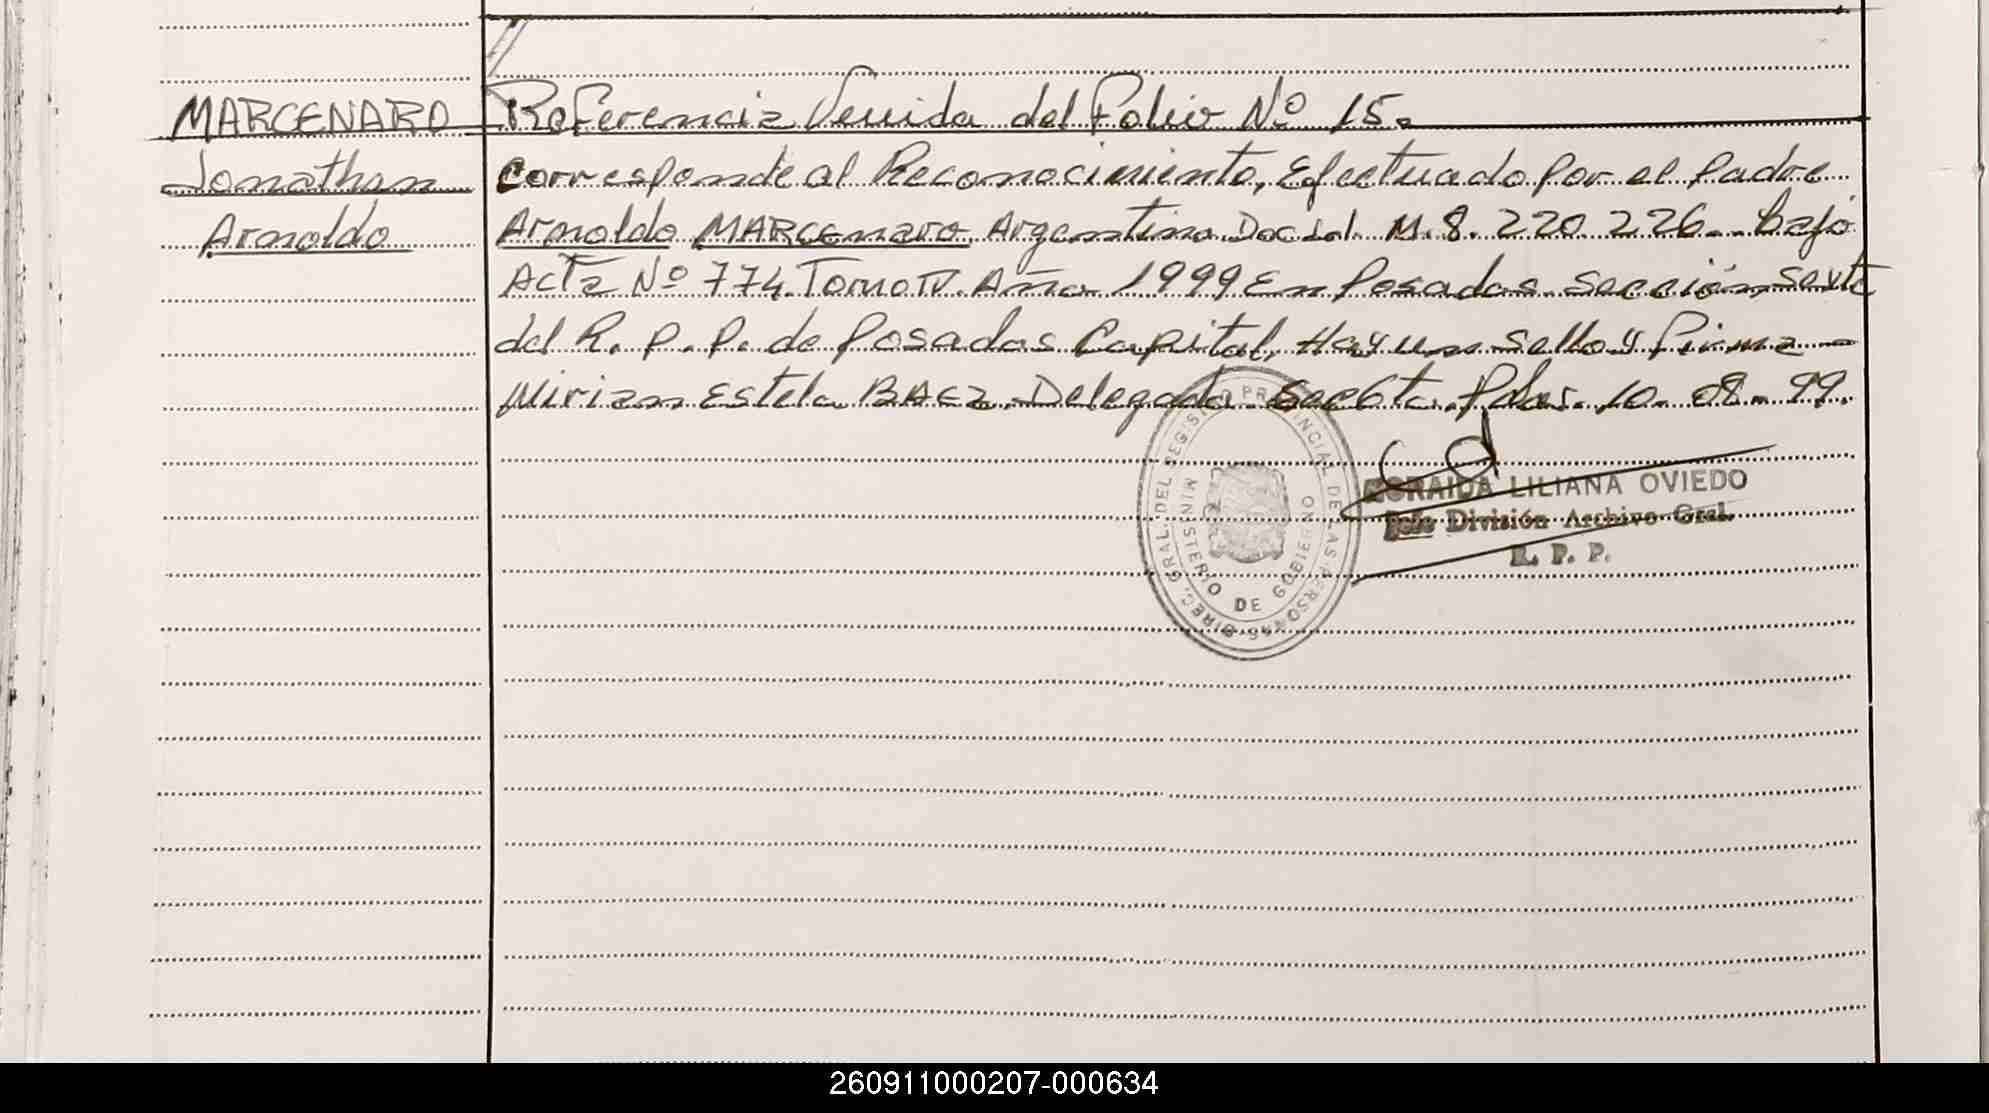 MARCENARO
Jonathan
Arnoldo
Referencia Venida del Folio Nº 15.
Corresponde al Reconocimiento, Efectuado por el Padre
Arnoldo MARCENARO, Argentino Doc. Id. M. 8. 220. 226.- Bajo
Acta Nº 774. Tomo IV. Año 1999 En Posadas. Sección, Sexta
del R. P. P. de Posadas Capital, Hay un sello y Firma -
Miriam Estela BAEZ. Delegada. Sec 6ta. Pdas. 10. 08. 99.
DIREC. GRAL. DEL REGISTRO PROVINCIAL DE LAS PERSONAS
MINISTERIO DE GOBIERNO
ZORAIDA LILIANA OVIEDO
Jefe División Archivo Gral.
R. P. P.
260911000207-000634